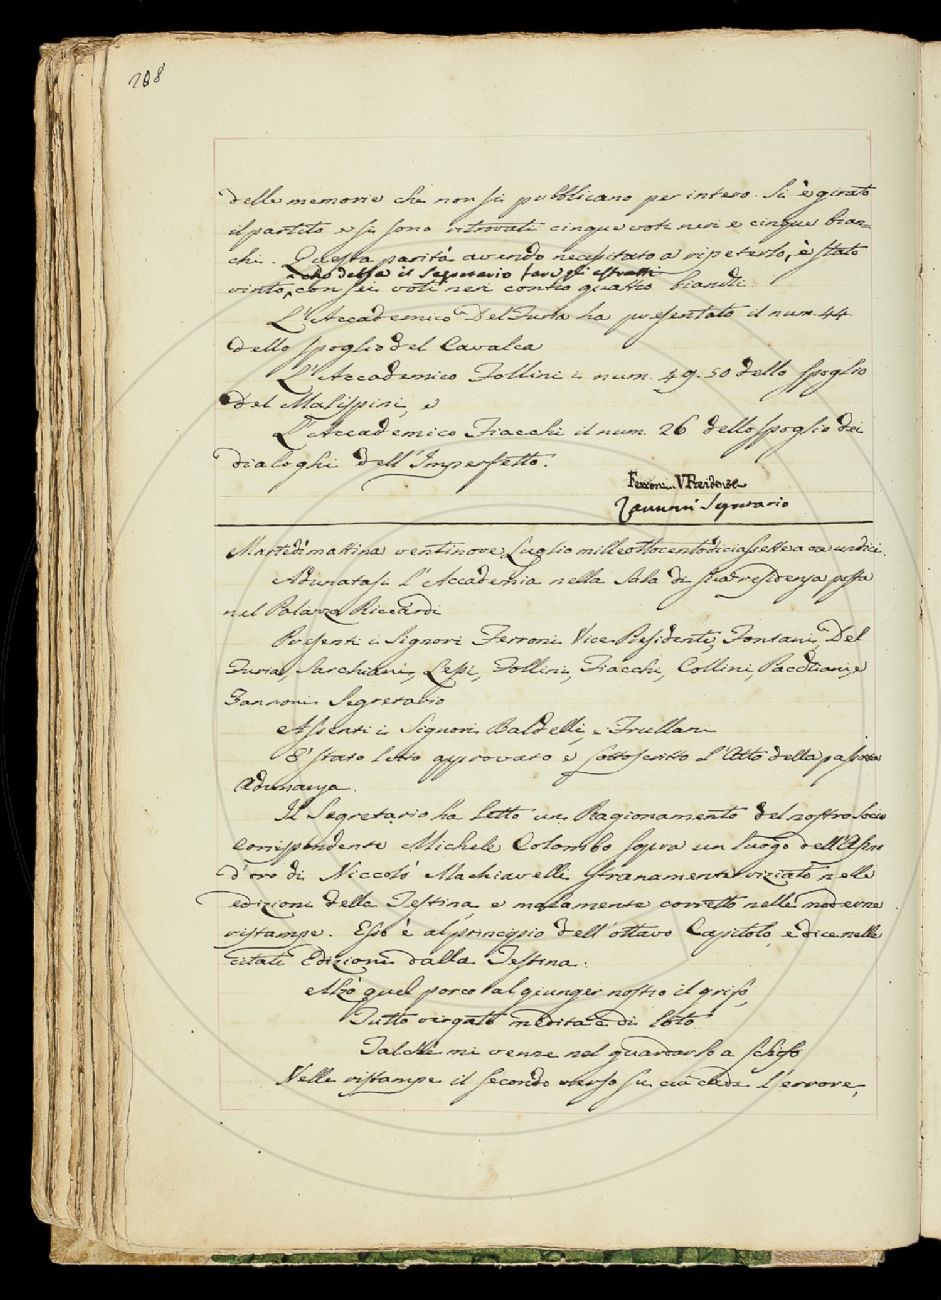 208
delle memorie che non si pubblicano per intero. Si è girato
il partito e si sono ritrovati cinque voti neri e cinque bian=
chi. Questa parità avendo necessitato a ripeterlo, è stato
che debba il Segretario fare gli estratti
vinto, con sei voti neri contro quattro bianchi
L'Accademico Del Furia ha presentato il num. 44
dello spoglio del Cavalca
L'Accademico Follini i num. 49. 50 dello spoglio
del Malispini, e
L'Accademico Fiacchi il num. 26 dello spoglio dei
dialoghi dell'Imperfetto.
Ferroni V. Presidente
Zannoni Segretario
Martedì mattina ventinove Luglio milleottocentodiciassette a ore undici.
Adunatasi l'Accademia nella Sala di sua residenza posta
nel Palazzo Riccardi
Presenti i Signori Ferroni Vice Presidente, Fontani, Del
Furia, Sarchiani, Lessi, Follini, Fiacchi, Collini, Pacchiani, e
Zannoni Segretario
Assenti i Signori Baldelli, e Frullani
È stato letto approvato e sottoscritto l'Atto della passata
Adunanza.
Il Segretario ha letto un Ragionamento del nostro Socio
Corrispondente Michele Colombo sopra un luogo dell'Asino
d'oro di Niccolò Machiavelli stranamente viziato nelle
edizioni della Testina, e malamente corretto nelle moderne
ristampe. Esso è al principio dell'ottavo Capitolo, e dice nelle
citate Edizioni dalla Testina:
Alzò quel porco al giunger nostro il grifo,
Tutto vergato merita e di loto
Talchè mi venne nel guardarlo a schifo
Nelle ristampe il secondo verso su cui cade l'errore,